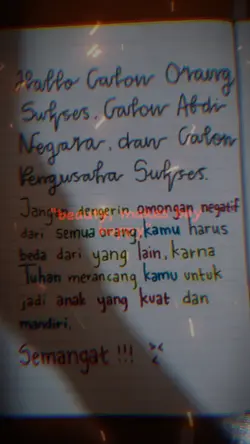 Hallo Calon Orang
Sukses, Calon Abdi
Negara, dan Calon
Pengusaha Sukses.
Jangan dengerin omongan negatif
dari semua orang, kamu harus
beda dari yang lain, karna
Tuhan merancang kamu untuk
jadi anak yang kuat dan
mandiri.
Semangat !!!